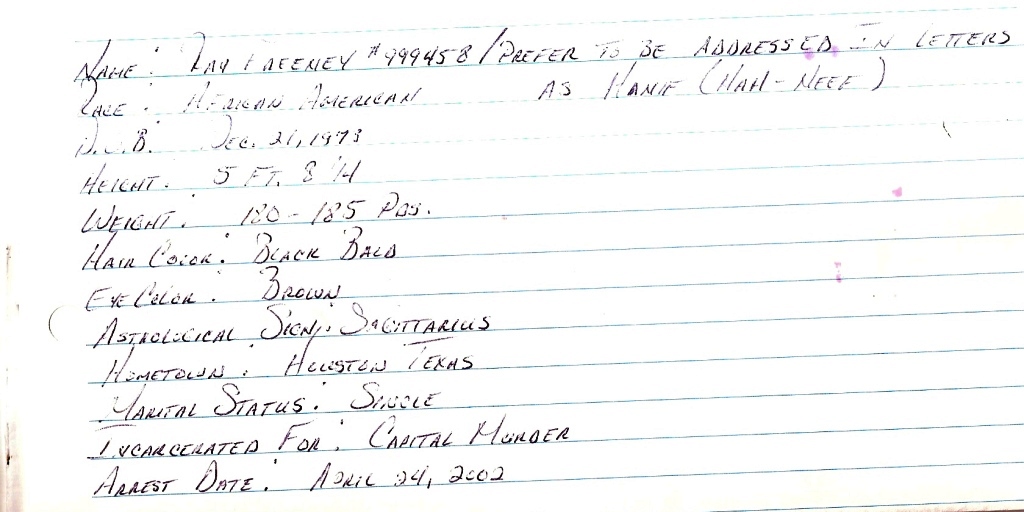 Name: Ray Freeney #999458 / Prefer to be addressed in letters
Race: African American as Hanif (Hah-Neef)
D.O.B. Dec. 21, 1973
Height: 5 ft. 8 1/4
Weight: 180-185 Pds.
Hair Color: Black Bald
Eye Color: Brown
Astrological Sign: Sagittarius
Hometown: Houston Texas
Marital Status: Single
Incarcerated For: Capital Murder
Arrest Date: April 24, 2002